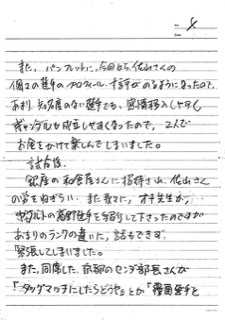 No. 8
また、パンフレットに、今回から佐山さんの
個々の選手のプロフィール・寸評がのるようになったので、
あまり知名度のない選手でも、感情移入しやすく
ギャンブルも成立しやすくなったので、2人で
お金をかけて楽しんでしまいました。
試合後、
銀座の和食屋さんに招待され、佐山さん
の労をねぎらい、また春に、オチ先生が、
ヤクルトの高野選手を紹介して下さったのですが
あまりのランクの違いに、話もできず、
緊張してしまいました。
また、同席した、京都のセンダ部長さんが
「タッグマッチにしたらどうや」とか「覆面選手を